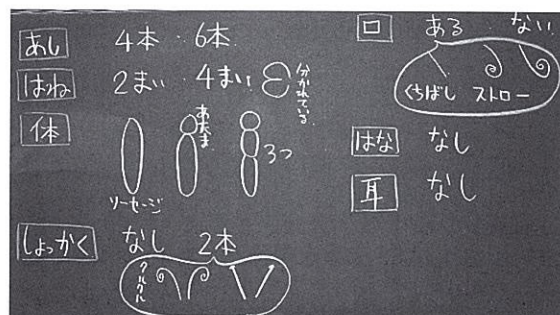 あし 4本 6本
はね 2まい 4まい 分かれている
体 あたま 3つ
ソーセージ
しょっかく なし 2本
クルクル
口 ある ない
くちばし ストロー
はな なし
耳 なし